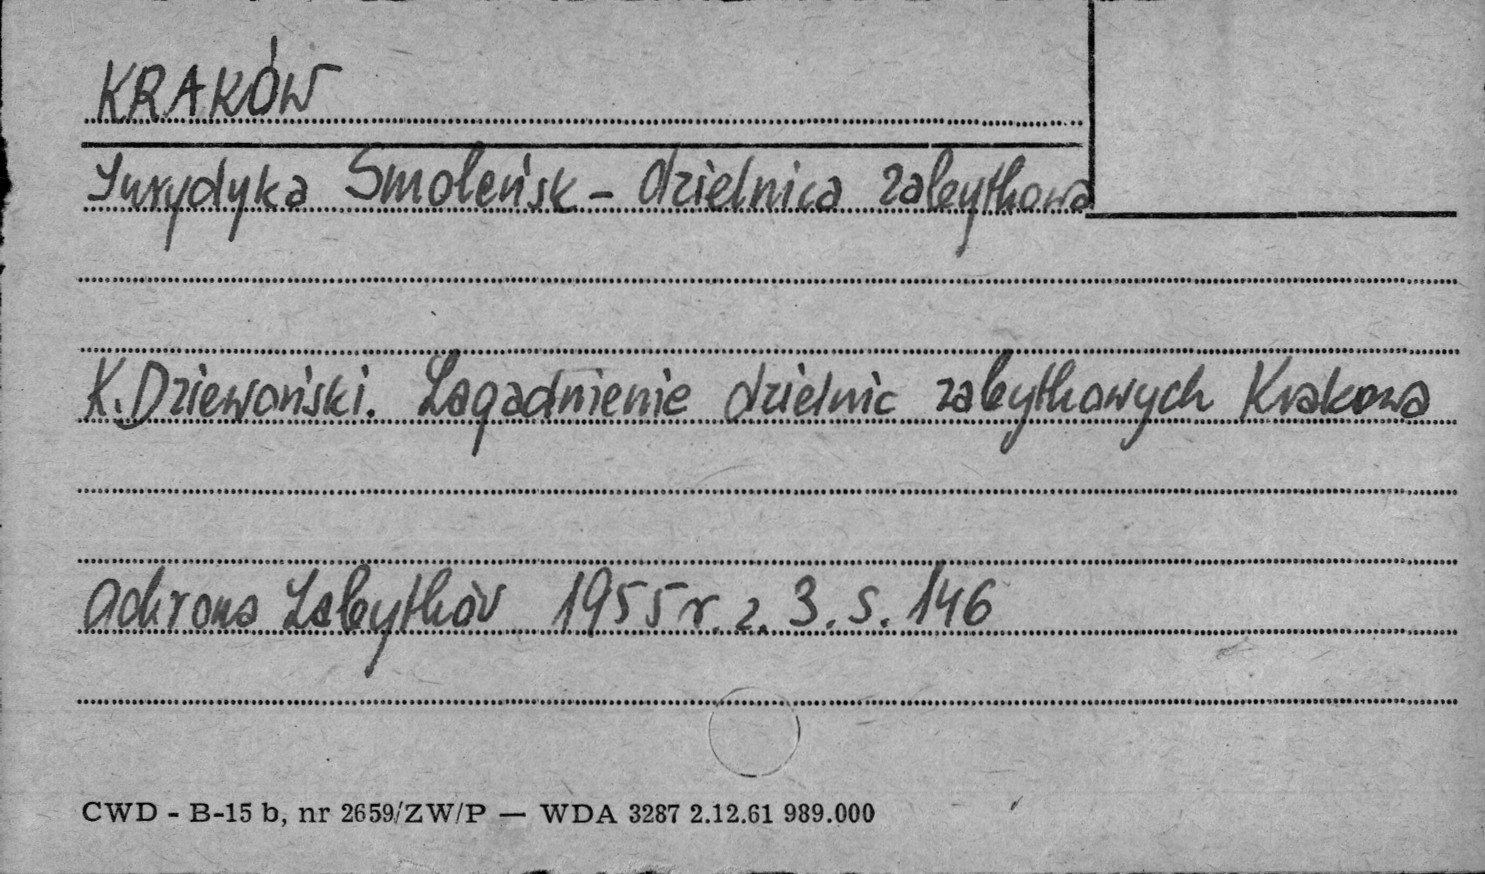 KRAKÓW
Jurydyka Smoleńsk - dzielnica zabytkowa
K. Dziewoński. Zagadnienie dzielnic zabytkowych Krakowa
Ochrona Zabytków 1955 r. z. 3. s. 146
CWD - B-15 b, nr 2659/ZW/P — WDA 3287 2.12.61 989.000